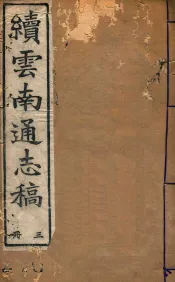 續雲南通志稿
三
冊